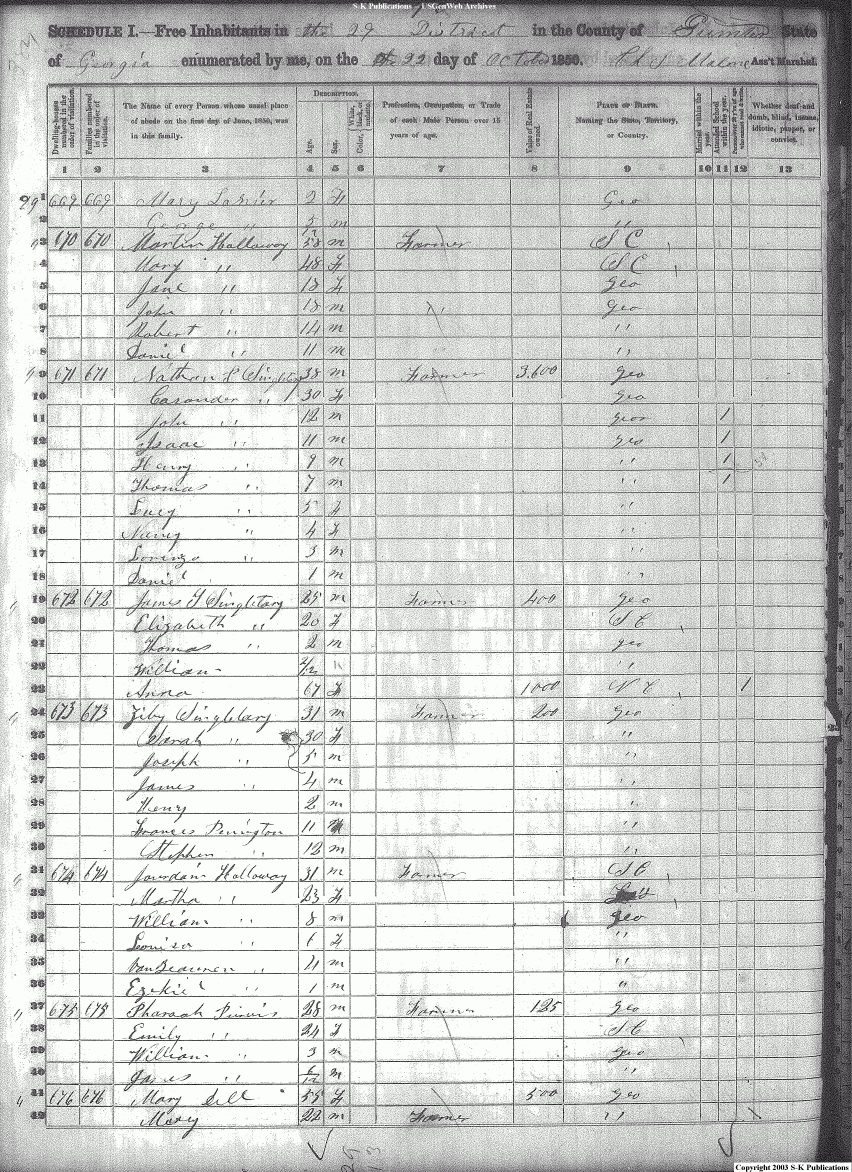 S-K Publications - USGenWeb Archives
SCHEDULE I.—Free Inhabitants in the 29 District in the County of Sumter State
of Georgia enumerated by me, on the 22 day of October 1850. Malone Ass't Marshal.
Dwelling-houses numbered in the order of visitation.
Families numbered in the order of visitation.
The Name of every Person whose usual place of abode on the first day of June, 1850, was in this family.
DESCRIPTION.
Age.
Sex.
Color, White, black, or mulatto.
Profession, Occupation, or Trade of each Male Person over 15 years of age.
Value of Real Estate owned.
PLACE OF BIRTH. Naming the State, Territory, or Country.
Married within the year.
Attended School within the year.
Persons over 20 y'rs of age who cannot read & write.
Whether deaf and dumb, blind, insane, idiotic, pauper, or convict.
1 2 3 4 5 6 7 8 9 10 11 12 13
1 669 669 Mary 2 F Geo
2 George " m "
3 670 670 Martin Holloway 58 m Farmer S C
4 Mary " 48 F S C
5 Jane " 18 F Geo
6 John " 18 m " Geo
7 Robert " 14 m "
8 Daniel " 11 m "
9 671 671 Nathan Singletary 38 m Farmer 3.600 Geo
10 Casander " 30 F Geo
11 John " 12 m Geo 1
12 Isaac " 11 m Geo 1
13 Henry " 9 m " 1
14 Thomas " 7 m " 1
15 Lucy " 5 F "
16 Nancy " 4 F "
17 Lorenzo " 3 m "
18 Daniel 1 m "
19 672 672 James T Singletary 25 m Farmer 400 Geo
20 Elizabeth " 20 F S C
21 Thomas " 2 m Geo
22 William 2/12 "
23 Anna 67 F 1000 N C 1
24 673 673 Ziby Singletary 31 m Farmer 200 Geo
25 Sarah " 30 F "
26 Joseph " 5 m "
27 James " 4 m "
28 Henry 2 m "
29 Frances Penington 11 "
30 Stephen " 12 m "
31 674 674 Jourdain Holloway 31 m Farmer S C
32 Martha " 23 F
33 William " 8 m Geo
34 Louisa " 6 F "
35 " 4 m "
36 Ezekiel " 1 m "
37 675 675 Pharaoh Purvis 28 m Farmer 125 Geo
38 Emily " 24 F S C
39 William " 3 m Geo
40 James " 6/12 m "
41 676 676 Mary Sill 55 F 500 Geo
42 Mary 22 m Farmer "
Copyright 2003 S-K Publications